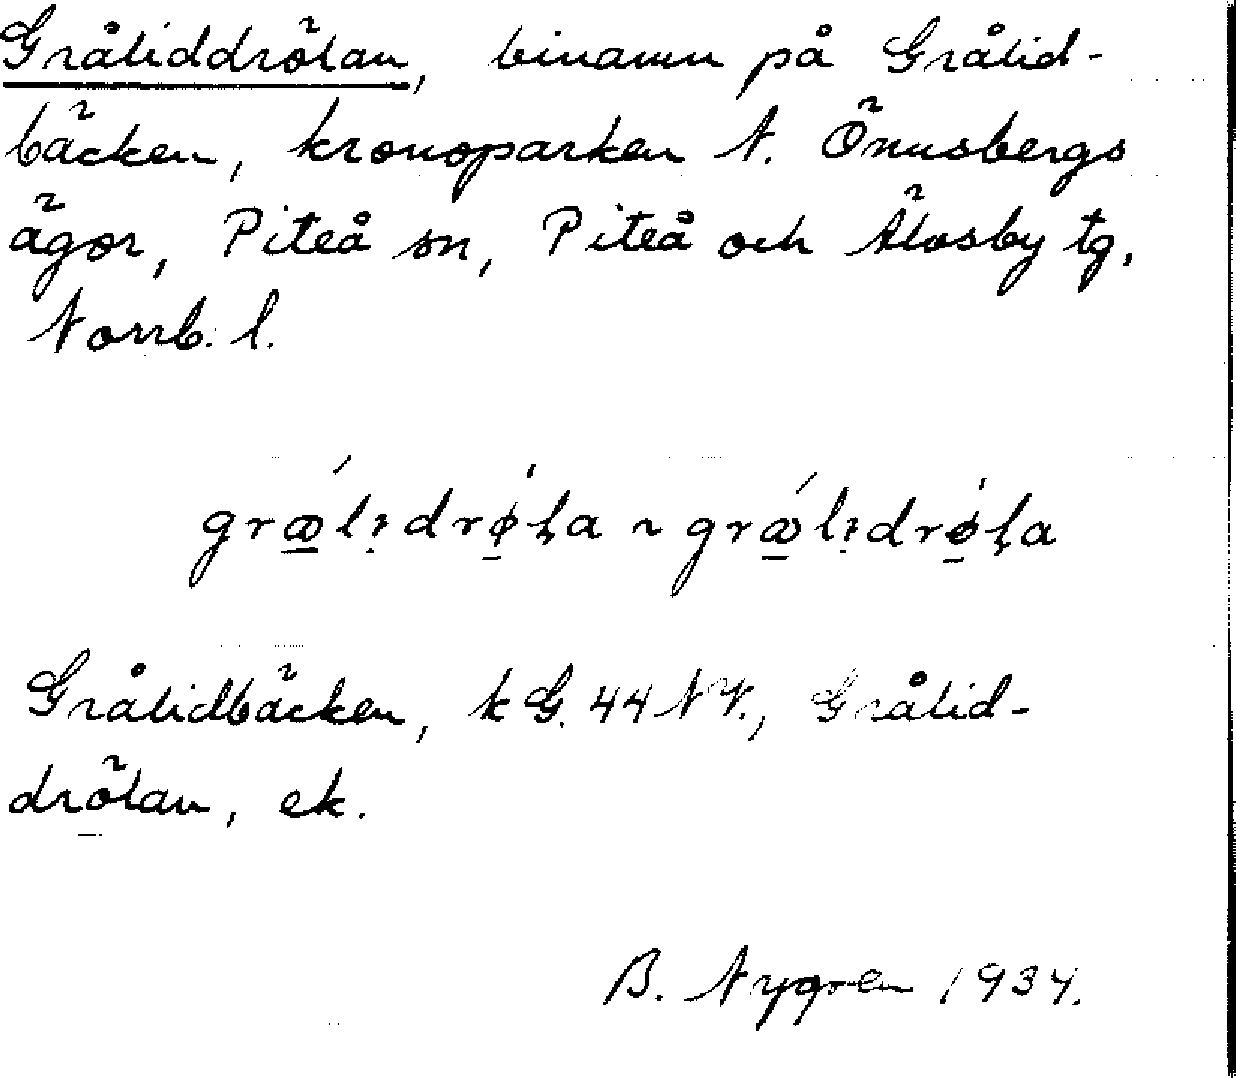 Gråliddrölan, binamn på Grålid-
bäcken, kronoparken N. Önusbergs
ägor, Piteå sn, Piteå och Älvsby tg,
Norrb. l.
Grålidbäcken, kG. 44 NV., Grålid-
drölan, ek.
B. Nygren 1934.